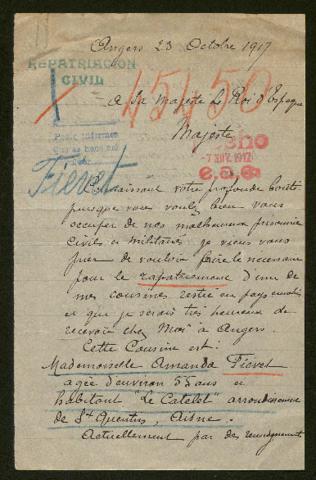 Angers 23 Octobre 1917
REPATRIACION
CIVIL
45450
A Sa Majesté Le Roi d'Espagne
Majesté
7 NOV. 1917
Fievet
Connaissant votre profonde bonté
puisque vous voulez bien vous
occuper de nos malheureux prisonniers
civils et militaires, je viens vous
prier de vouloir faire le nécessaire
pour le rapatriement d'une de
mes cousines restée en pays envahi
et que je serais très heureux de
recevoir chez Moi à Angers.
Cette Cousine est :
Mademoiselle Amanda Fievet
agée d'environ 55 ans et
habitant "Le Catelet" arrondissement
de St Quentin, Aisne.
Actuellement par des renseignements